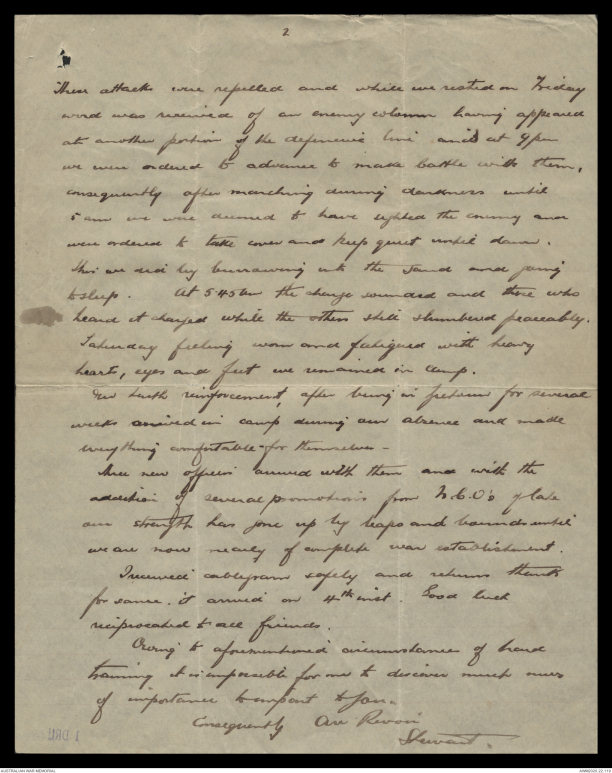 2
These attacks were repelled and while we rested on Friday
word was received of an enemy column having appeared
at another portion of the defensive line and at 9 pm
we were ordered to advance to make battle with them,
consequently after marching during darkness until
5 am we were deemed to have sighted the enemy and
were ordered to take cover and keep quiet until dawn.
This we did by burrowing into the sand and going
to sleep. At 5.45 am the charge sounded and those who
heard it charged while the others still slumbered peaceably.
Saturday feeling worn and fatigued with heavy
hearts, eyes and feet we remained in camp.
Our tenth reinforcement, after being in for several
weeks arrived in camp during our absence and made
everything comfortable for themselves -
Three new officers arrived with them and with the
addition of several promotions from N.C.O's of late
our strength has gone up by leaps and bounds until
we are now nearly of complete war establishment.
I received cablegram safely and return thanks
for same. it arrived on 4th inst. Good luck
reciprocated to all friends.
Owing to aforementioned circumstances of hard
training it is impossible for me to discover much news
of importance to import to you.
Consequently Au Revoir
Stewart.
1 DRL
AUSTRALIAN WAR MEMORIAL